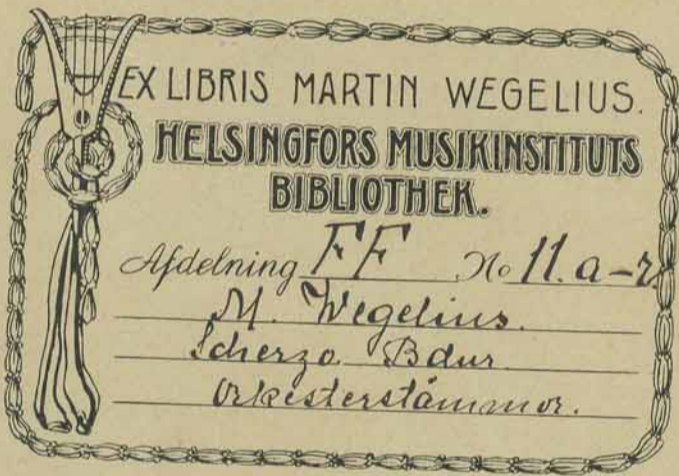 EX LIBRIS MARTIN WEGELIUS.
HELSINGFORS MUSIKINSTITUTS
BIBLIOTHEK.
Afdelning FF No 11. a-r
M. Wegelius.
Scherzo Bdur
Orkesterstämmor.